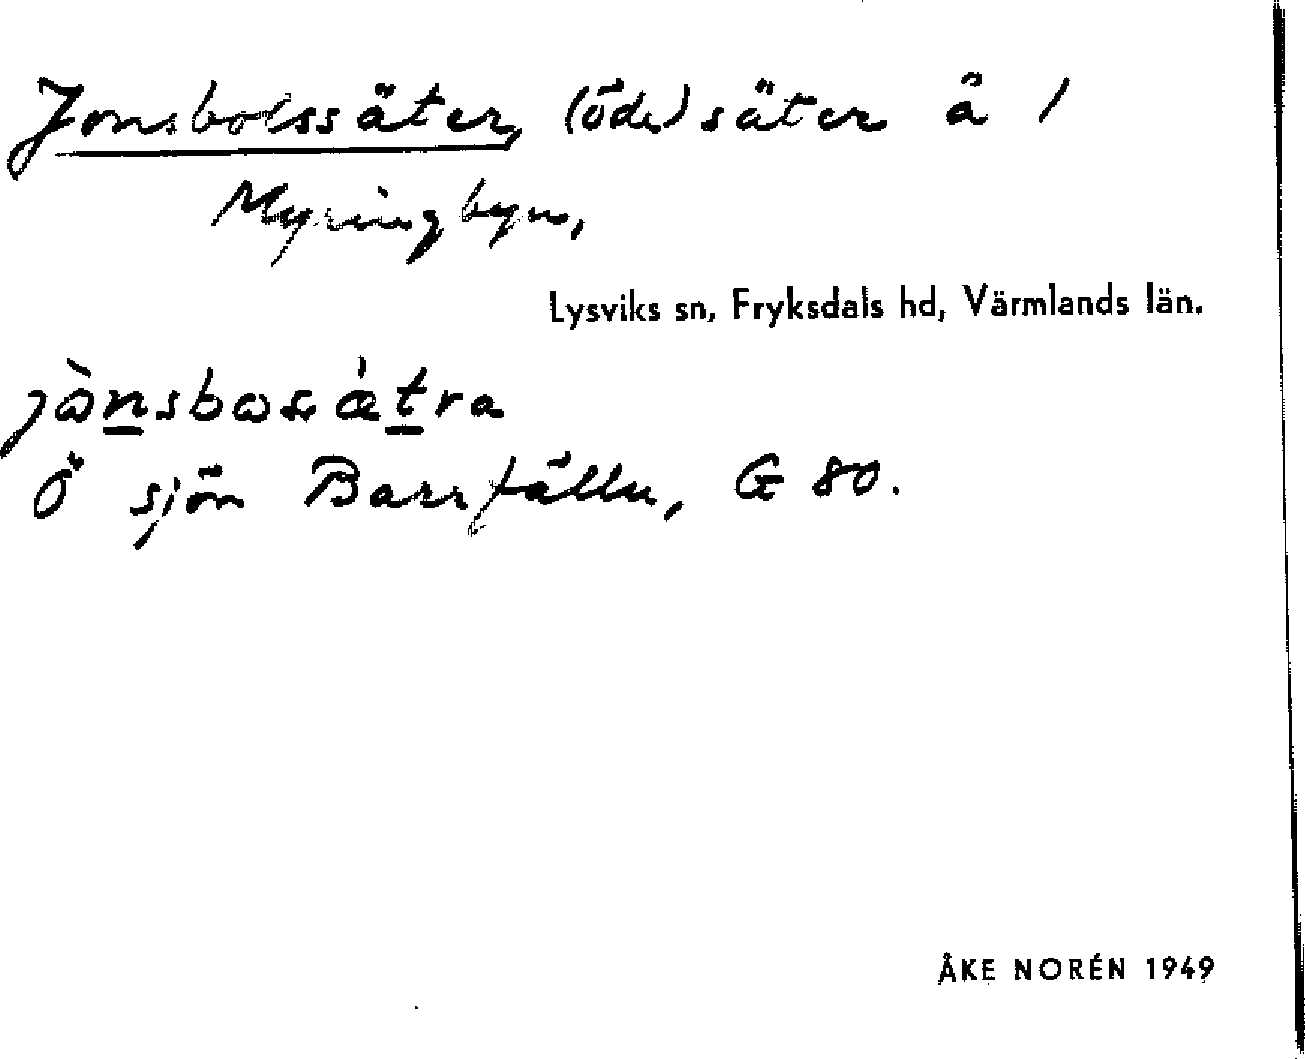 Jonsbolssäter, (öde)säter å 1
Myringbyn,
Lysviks sn, Fryksdals hd, Värmlands län.
Ö sjön Barrtälln, G 80.
ÅKE NORÉN 1949